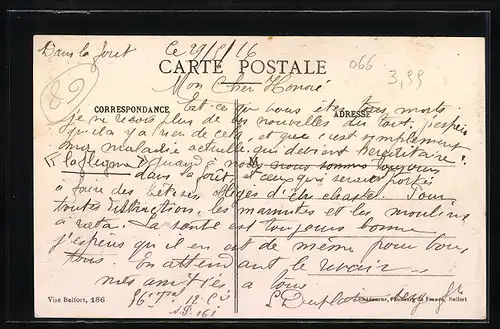 Dans la foret Ce 9/5/16
066
3,99
82
CARTE POSTALE
Mon Cher Honoré
CORRESPONDANCE
ADRESSE
Est-ce que vous êtes tous morts
je ne reçois plus de vos nouvelles du tout, j'espère
qu'il n'y a rien de cela, et que c'est simplement
une maladie actuelle qui devient héréditaire:
(la flegme) quand à nous nous sommes toujours
dans la forêt, et ceux qui seraient portés
à faire des bêtises obligés d'être chaste. Pour
toutes distractions, les marmites et les moulins
à veta. La santé est toujours bonne
j'espère qu'il en est de même pour vous
tous. En attendant le revoir
mes amitiés à tous
86e 12e Cie
S.P. 161
Visé Belfort, 186
de France, Belfort